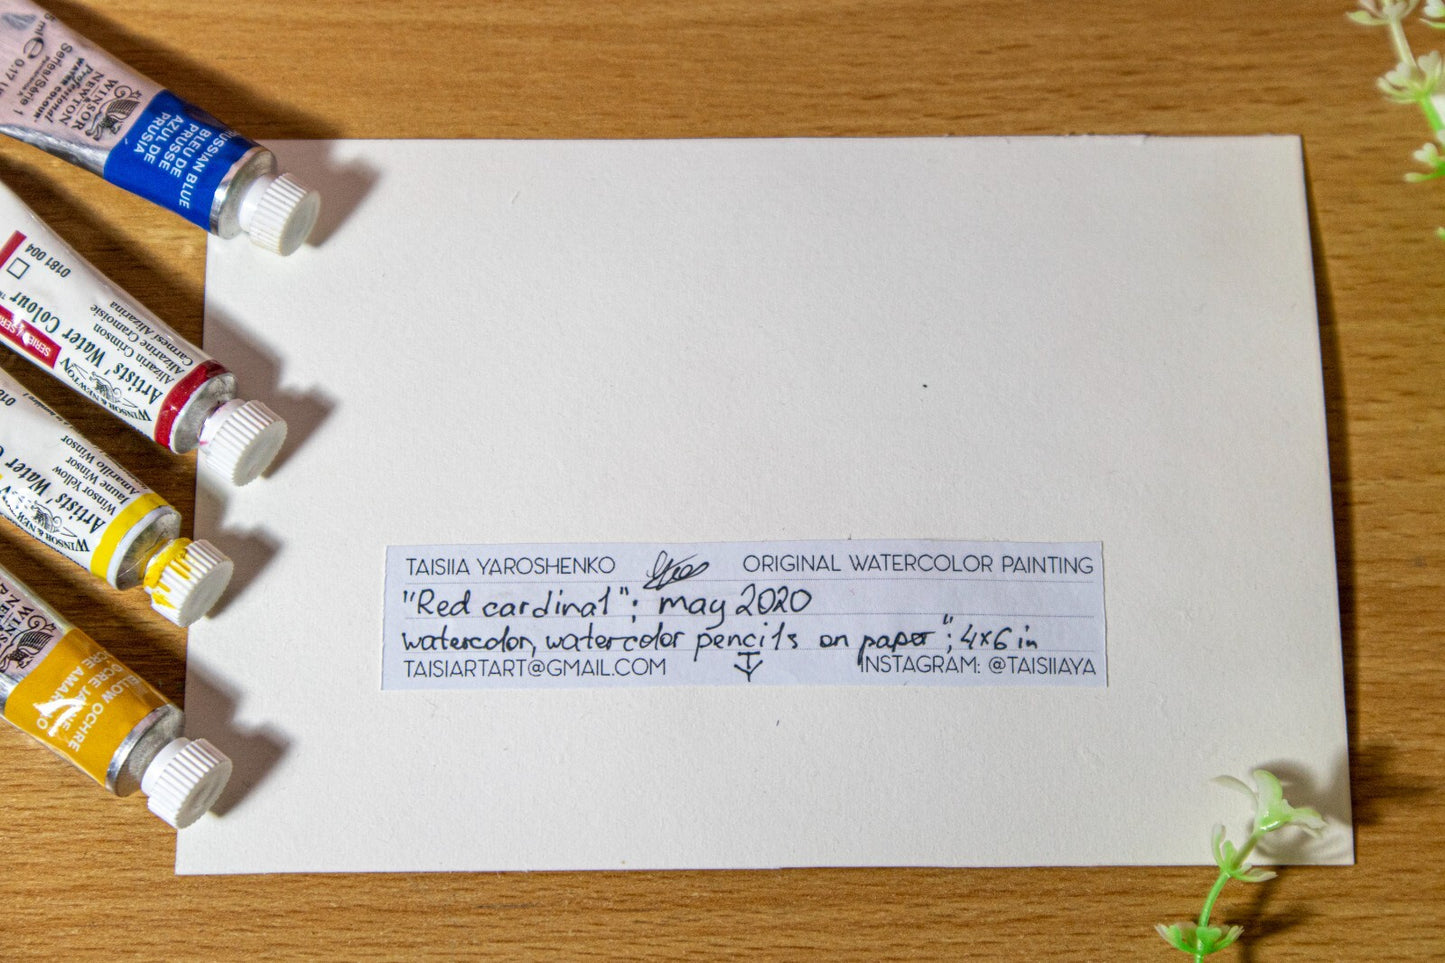 TAISIIA YAROSHENKO ORIGINAL WATERCOLOR PAINTING
"Red cardinal"; may 2020
watercolor, watercolor pencils on paper"; 4×6 in
TAISIARTART@GMAIL.COM INSTAGRAM: @TAISIIAYA
0.17
Series/Série 1
Professional
WATER COLOUR
WINSOR
& NEWTON
RUSSIAN BLUE
BLEU DE
PRUSSE
AZUL DE
PRUSIA
0181 004
SERIE
Artists' Water Colour
Alizarin Crimson
Alizarine Cramoisie
Carmesí Alizarina
WINSOR & NEWTON
Artists' Water
Winsor Yellow
Jaune Winsor
Amarillo Winsor
WINSOR & NEWTON
LOW OCHRE
OCRE JAUNE
CRE AMARILLO